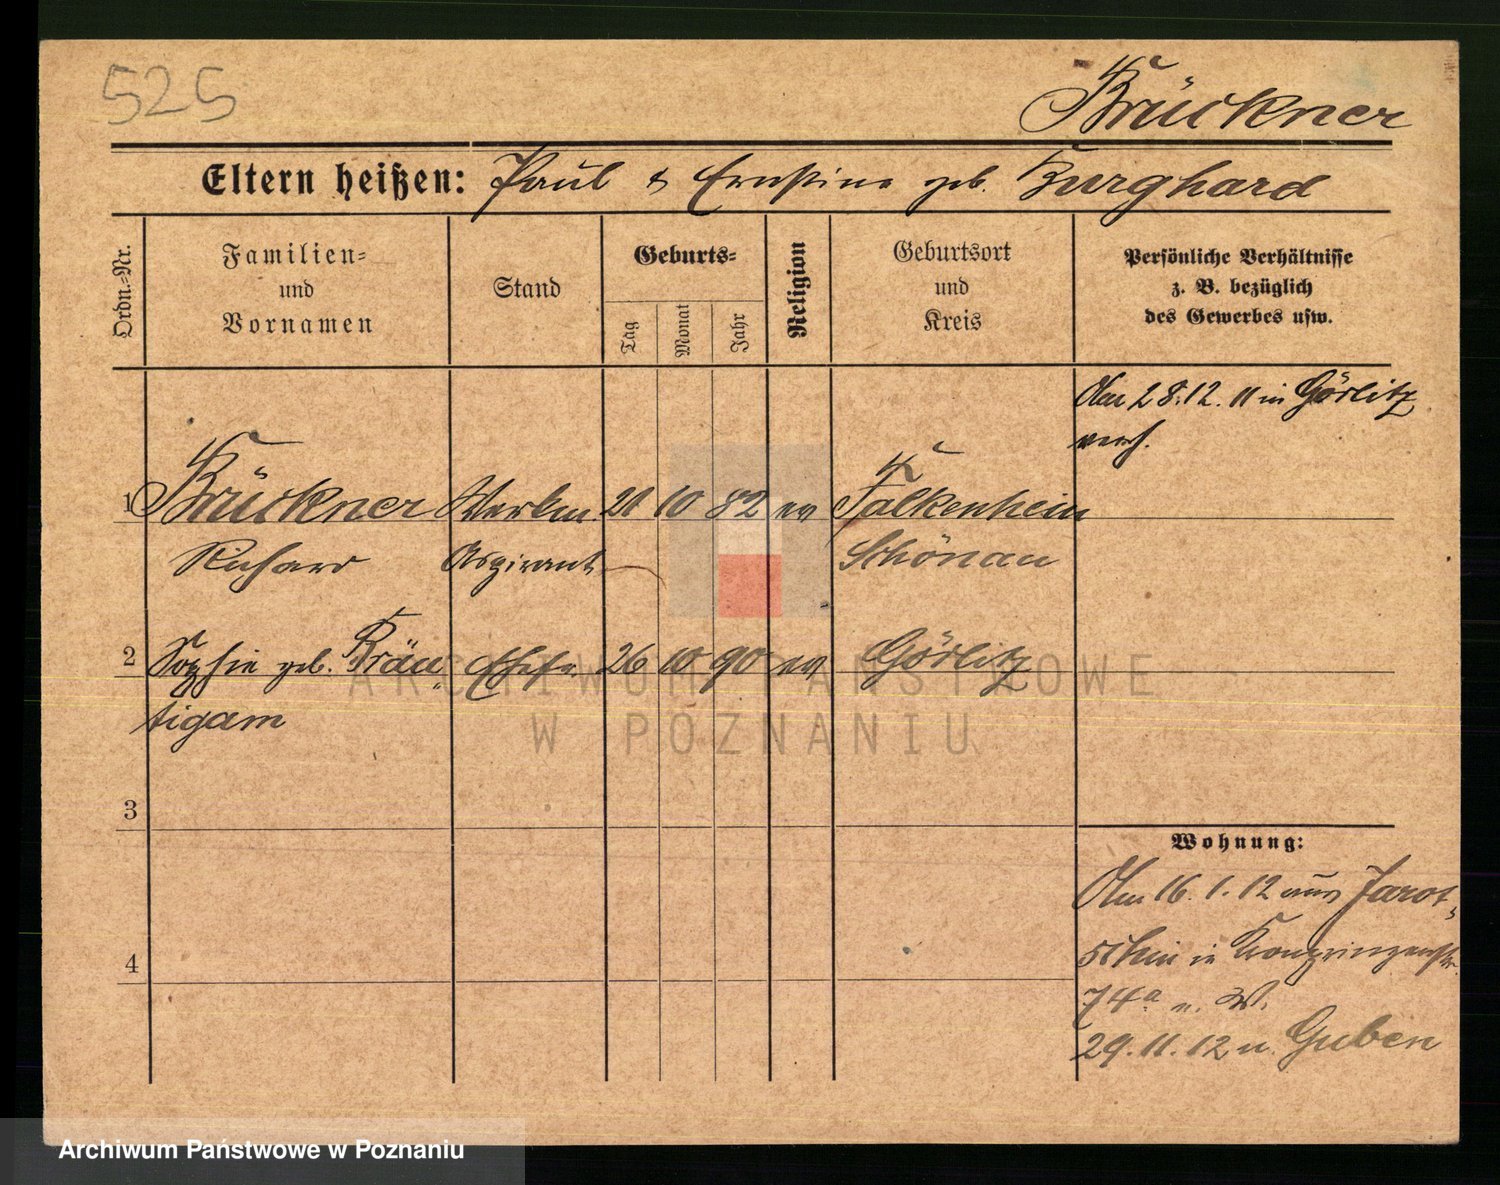 525
Brückner
Eltern heißen: Paul & Ernstine geb. Burghard
Ordn.-Nr.
Familien-
und
Vornamen
Stand
Geburts-
Tag
Monat
Jahr
Religion
Geburtsort
und
Kreis
Persönliche Verhältnisse
z. B. bezüglich
des Gewerbes usw.
Am 28.12.11 in Görlitz
verh.
1 Brückner Werkm. 21 10 82 ev Falkenhein
Richard Aspirant Schönau
2 Sophie geb. Bräu- Ehefr. 26 10 90 ev Görlitz
tigam
3
4
Wohnung:
Am 16.1.12 aus Jarot-
schin in Kronprinzenstr.
74a n. W.
29.11.12 n. Guben
ARCHIWUM PAŃSTWOWE
W POZNANIU
Archiwum Państwowe w Poznaniu